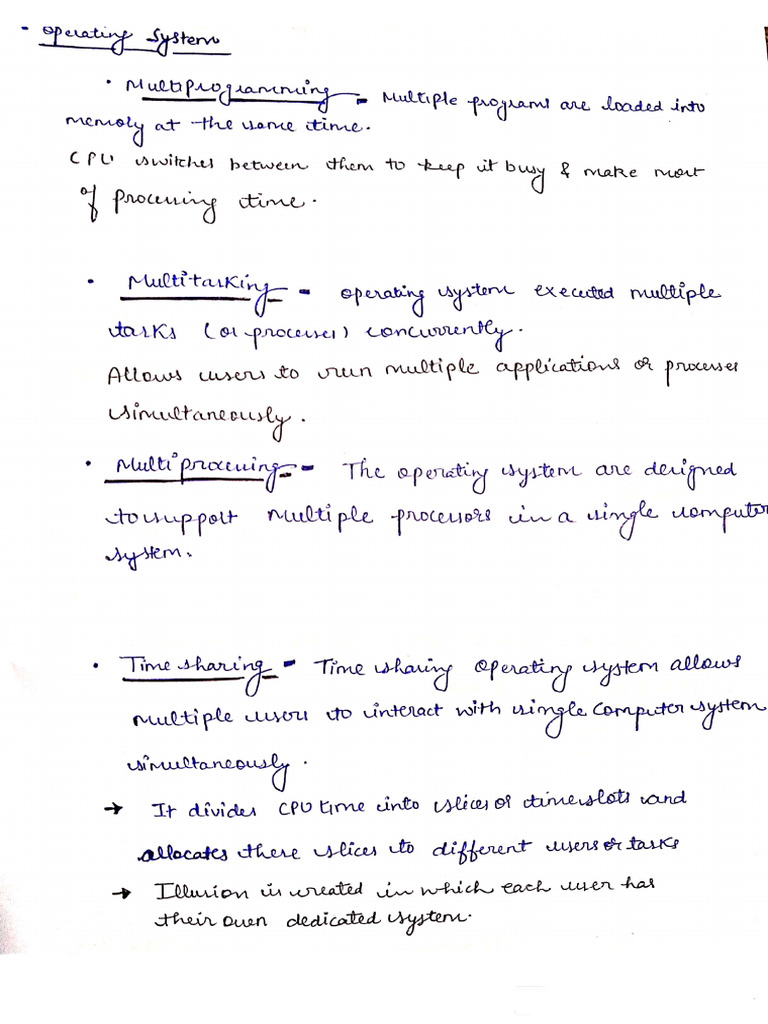 - Operating System
• Multiprogramming - Multiple programs are loaded into
memory at the same time.
CPU switches between them to keep it busy & make most
of processing time.
• Multitasking - operating system executed multiple
tasks (or processes) concurrently.
Allows users to run multiple applications or processes
simultaneously.
• Multiprocessing - The operating system are designed
to support multiple processors in a single computer
system.
• Time sharing - Time sharing operating system allows
multiple users to interact with single computer system
simultaneously.
→ It divides CPU time into slices or time slots and
allocates these slices to different users or tasks
→ Illusion is created in which each user has
their own dedicated system.